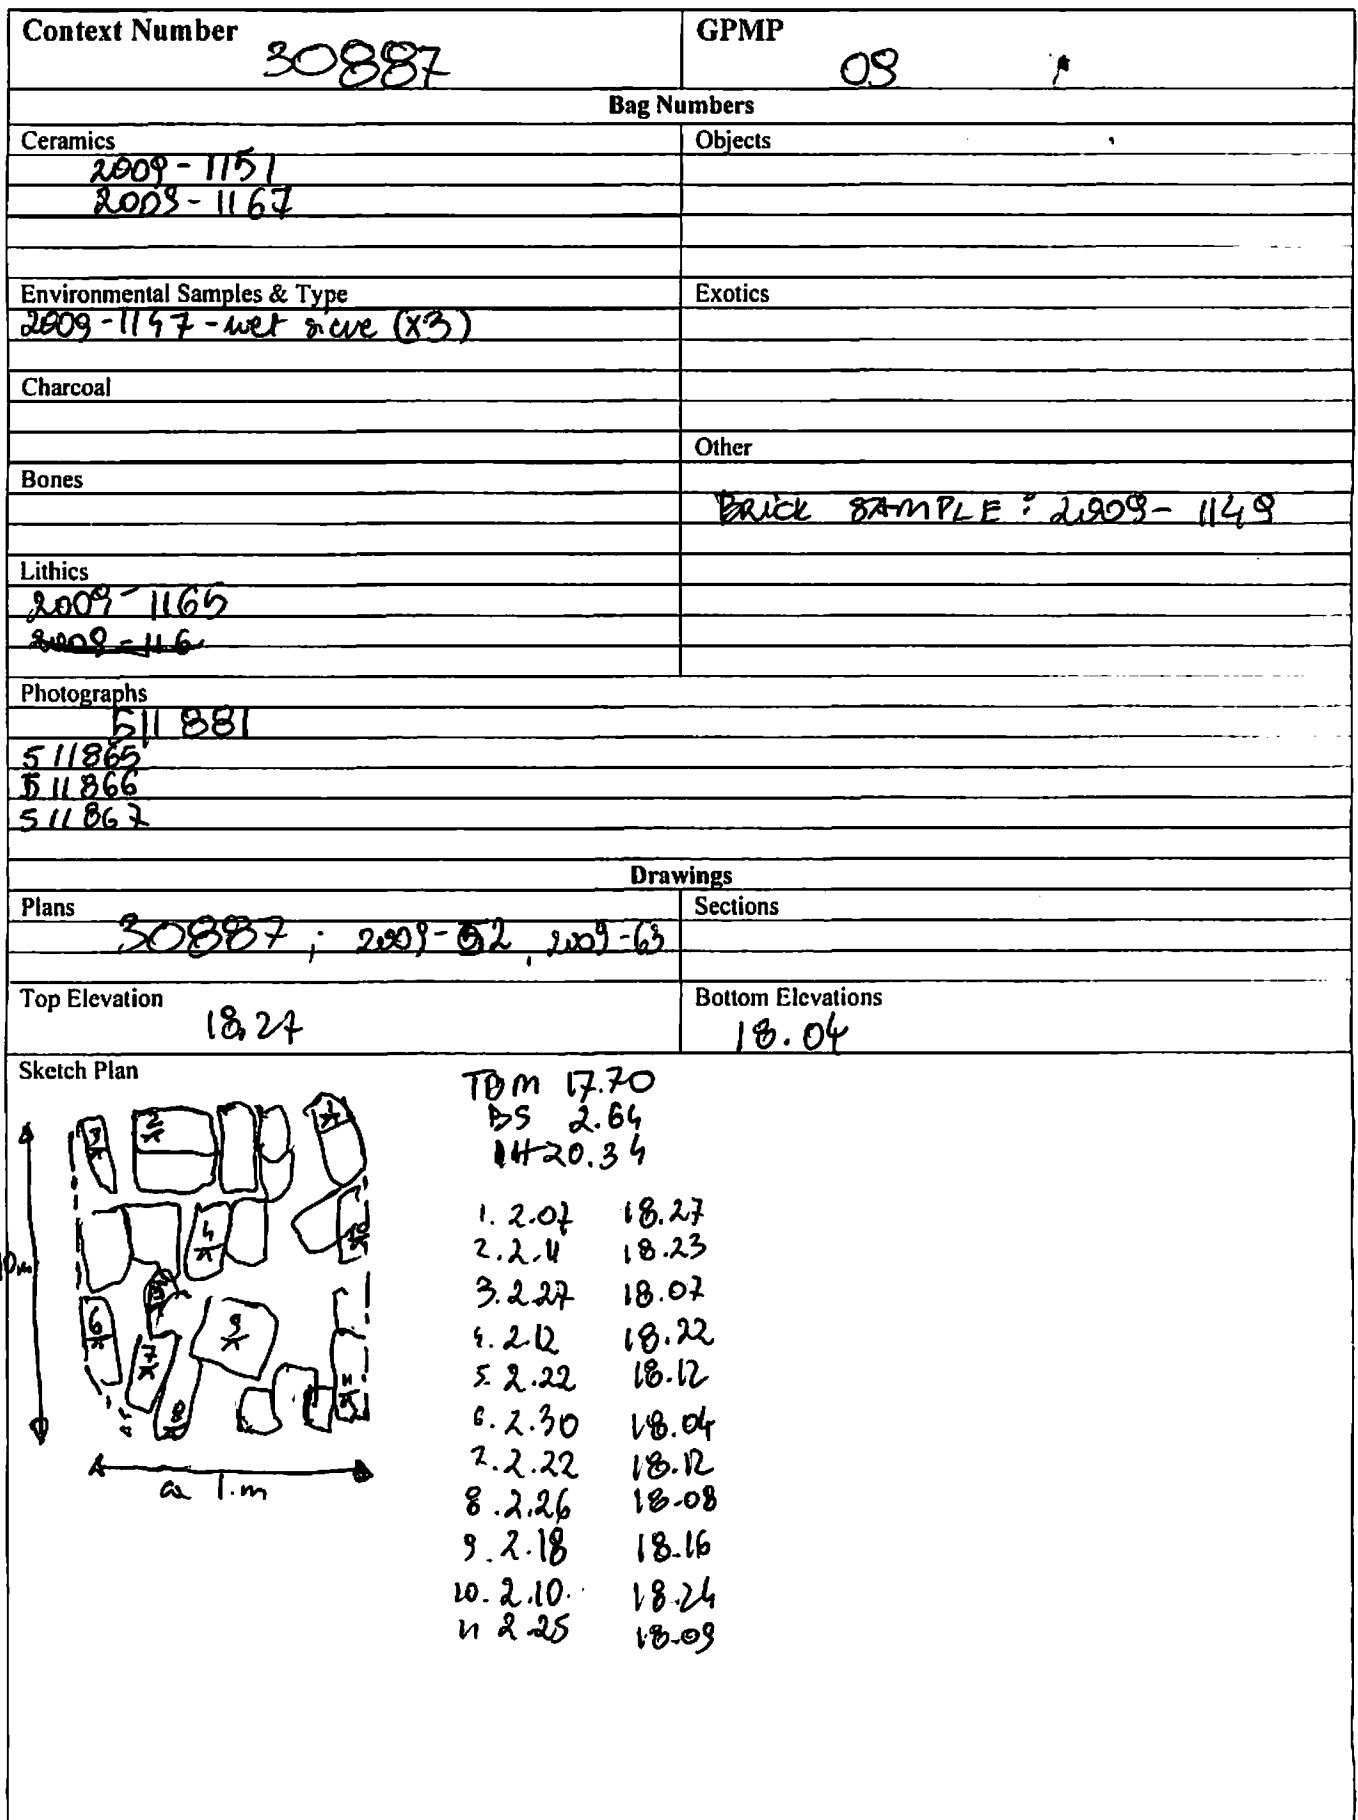 Context Number
30887
GPMP
09
Bag Numbers
Ceramics
2009-1151
2009-1167
Objects
Environmental Samples & Type
2009-1147-wet sieve (x3)
Exotics
Charcoal
Other
Bones
BRICK SAMPLE: 2009-1149
Lithics
2009-1165
2009-116
Photographs
511881
511865
511866
511867
Drawings
Plans
30887; 2009-62, 2009-63
Sections
Top Elevation
18.27
Bottom Elevations
18.04
Sketch Plan
TBM 17.70
BS 2.64
IH 20.34
1. 2.07 18.27
2. 2.11 18.23
3. 2.27 18.07
4. 2.12 18.22
5. 2.22 18.12
6. 2.30 18.04
7. 2.22 18.12
8. 2.26 18.08
9. 2.18 18.16
10. 2.10 18.24
11 2.25 18.09
3
2
1
4
10
5
6
9
7
8
11
ca 1.m